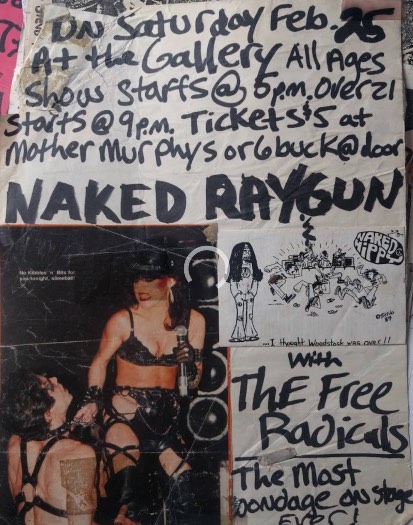 ON Saturday Feb. 25
At the Gallery All Ages
Show Starts @ 5pm. Over 21
starts @ 9pm. Tickets $5 at
Mother Murphys or 6 buck @ door
NAKED RAYGUN
No Kibbles 'n' Bits for
you tonight, slimeball!
NAKED
HIPPY
...I thought Woodstock was over!!
With
The Free
Radicals
The Most
Bondage on stage
EVER!